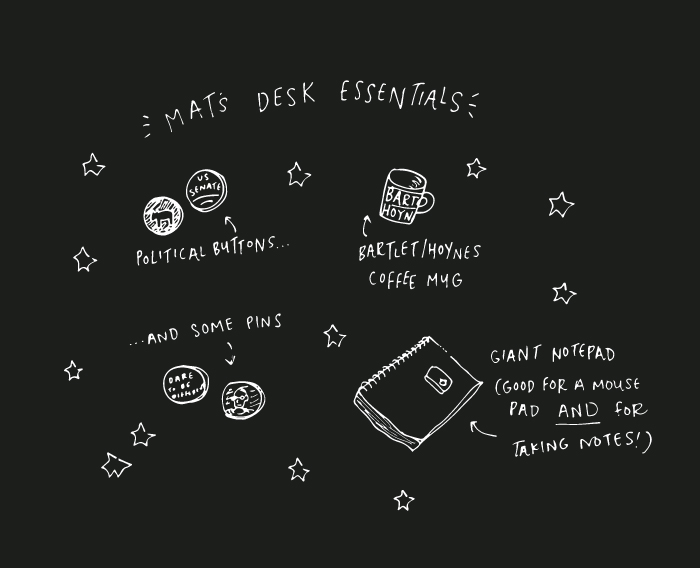 MAT'S DESK ESSENTIALS
US
SENATE
BART
HOYN
POLITICAL BUTTONS...
BARTLET/HOYNES
COFFEE MUG
...AND SOME PINS
DARE
TO BE
DIFFERENT
GIANT NOTEPAD
(GOOD FOR A MOUSE
PAD AND FOR
TAKING NOTES!)